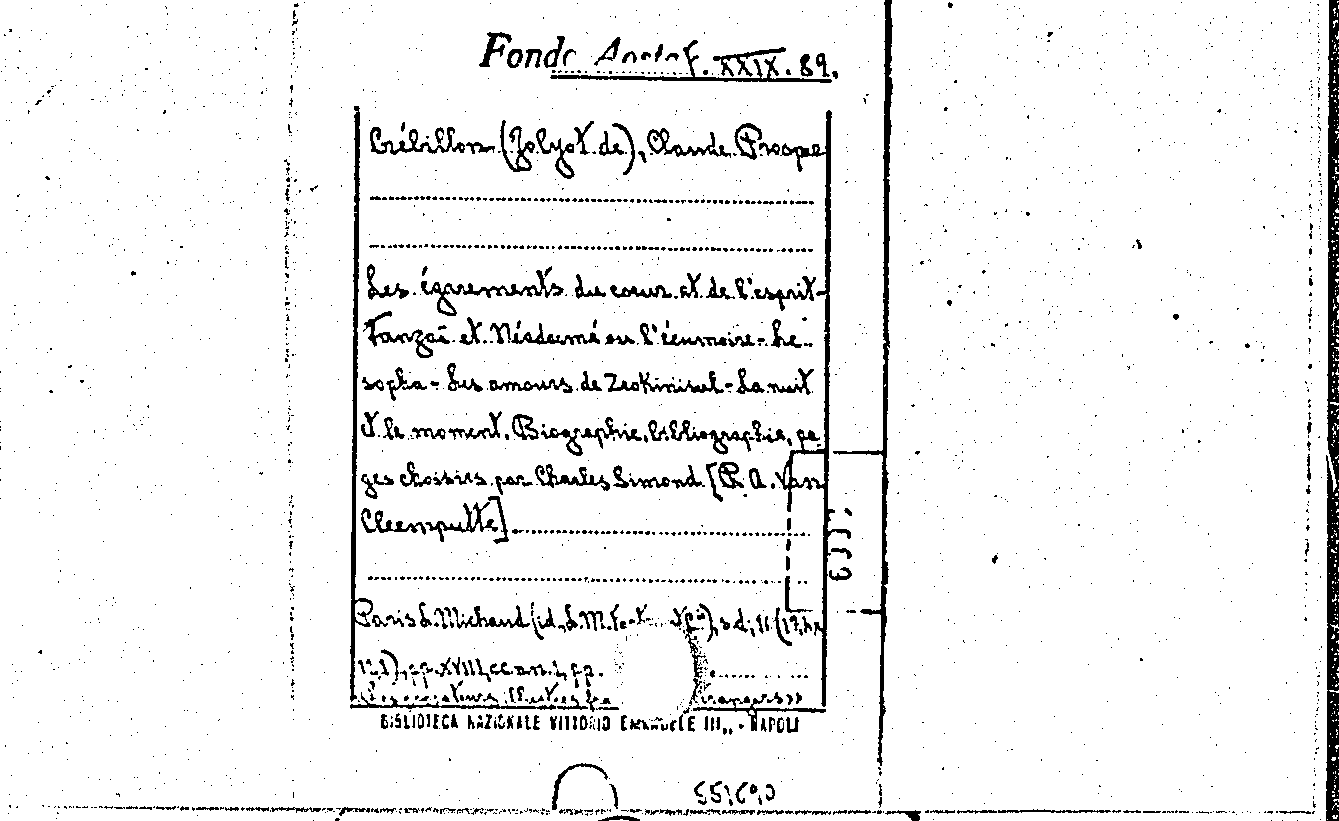 Fondo Aosta F. XXIX. 89.
Crébillon (Jolyot de), Claude Prosper
Les égarements du cœur et de l'esprit-
Tanzaï et Néadarné ou l'écumoire - Le
sopha - Les amours de Zeokinizul - La nuit
et le moment. Biographie, bibliographie, pa
ges choisies par Charles Simond [P. A. Van
Cleemputte]
Paris L. Michaud (id., L. M.
pp. XVIII,
BIBLIOTECA NAZIONALE VITTORIO EMANUELE III,, - NAPOLI